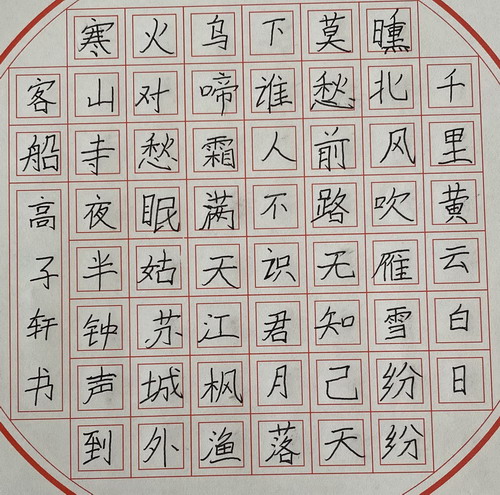 千里黄云白日
曛北风吹雁雪纷纷
莫愁前路无知己天
下谁人不识君月落
乌啼霜满天江枫渔
火对愁眠姑苏城外
寒山寺夜半钟声到
客船
高子轩书